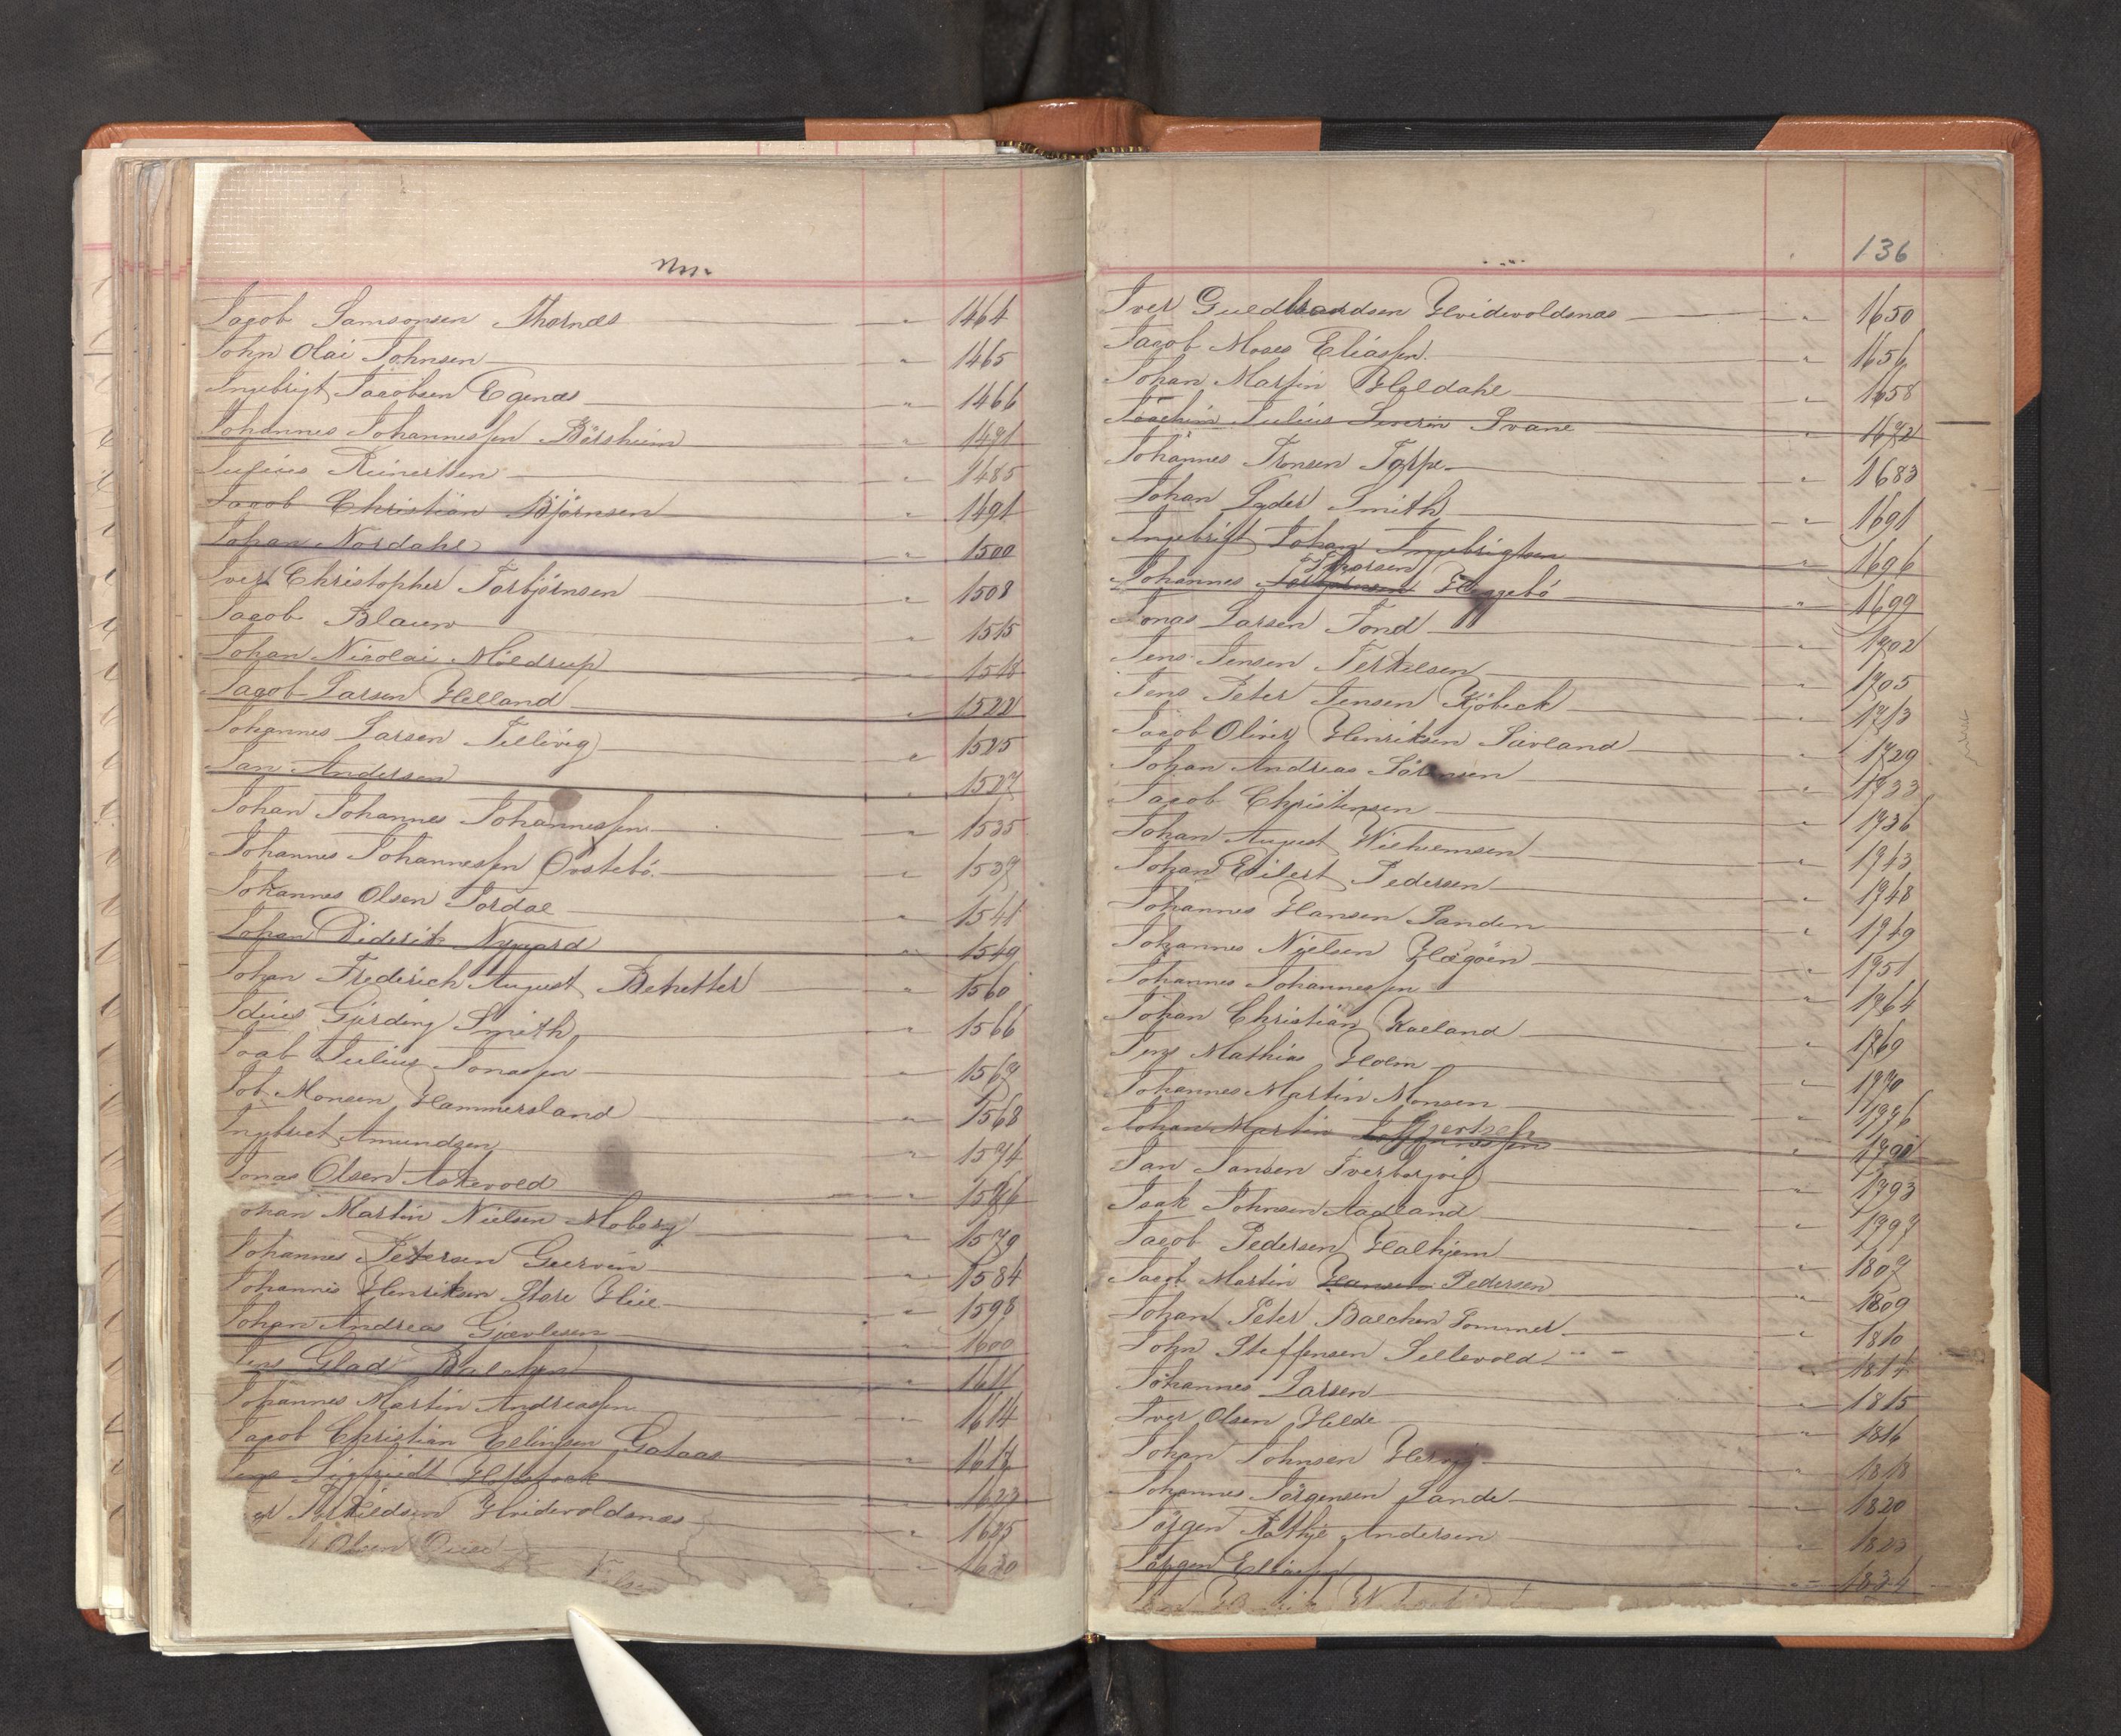 Nr.
Jacob Samsonsen Thornæs " 1464
John Olai Johnsen " 1465
Ingebrigt Jacobsen Egenæs " 1466
Johannes Johannessen Børsheim " 1471
Julius Reinertsen " 1485
Jacob Christian Bjørnsen " 1491
Johan Nordahl " 1500
Iver Christopher Torbjørnsen " 1508
Jacob Blaum " 1515
Johan Nicolai Møldrup " 1518
Jacob Larsen Helland " 1522
Johannes Larsen Tellevig " 1525
Jan Andersen " 1527
Johan Johannes Johannessen " 1535
Johannes Johannessen Øvstebö " 1537
Johannes Olsen Jordal " 1541
Johan Diderik Nygaard " 1549
Johan Frederich August " 1560
Gjerding Smith " 1566
Joab Julius Jonassen " 1567
Job Monsen Hammersland " 1568
Ingebrict Amundsen " 1574
Jonas Olsen Askevold " 1576
ohan Martin Nielsen Moberg " 1579
Johannes Petersen Geervin " 1584
Johannes Henriksen Store Hiie " 1598
Johan Andreas Gjævlesen " 1600
Jens Glad Balchen " 1611
Johannes Martin Andreassen " 1614
Jacob Christian Ellingsen Gataas " 1617
Jens Sigfriedt Hofstock " 1623
er Terkildsen Hvidevoldsnæs " 1625
Olsen " 1630
136
Iver Guldbrandsen Hvidevoldsnæs " 1650
Jacob Moses Eliassen " 1656
Johan Martin Holdahl " 1658
Joachim Julius Severin Svane " 1672
Johannes Tronsen Torpe " 1683
Johan Peder Smith " 1691
Ingebrigt Johan Ingebrigtsen " 1696
Thorsen
Johannes Haggebö " 1699
Jonas Larsen Tond " 1702
Jens Jensen Terkelsen " 1705
Jens Peter Jensen Kjöbeck " 1713
Jacob Oliver Henriksen Sævland " 1729
Johan Andreas Sörensen " 1733
Jacob Christensen " 1736
Johan August Wilhelmsen " 1743
Johan Eilert Pedersen " 1748
Johannes Hansen Sanden " 1749
Johannes Nielsen Hægöen " 1751
Johannes Johannessen " 1764
Johan Christian Kaland " 1769
Jens Mathias Holm " 1770
Johannes Martin Monsen " 1776
Johan Martin Gjertsen " 1790
Jan Jansen Tverborvig " 1793
Isak Johnsen Aadland " 1797
Jacob Pedersen Halhjem " 1807
Jacob Martin Hansen Pedersen " 1809
Johan Peter Balchen Sommer " 1810
John Steffensen Sellevold " 1814
Johannes Larsen " 1815
Iver Olsen Hilde " 1816
Johan Johnsen " 1818
Johannes Jörgensen Sande " 1820
Jörgen Rathje Andersen " 1823
Jörgen Eliassen " 1834